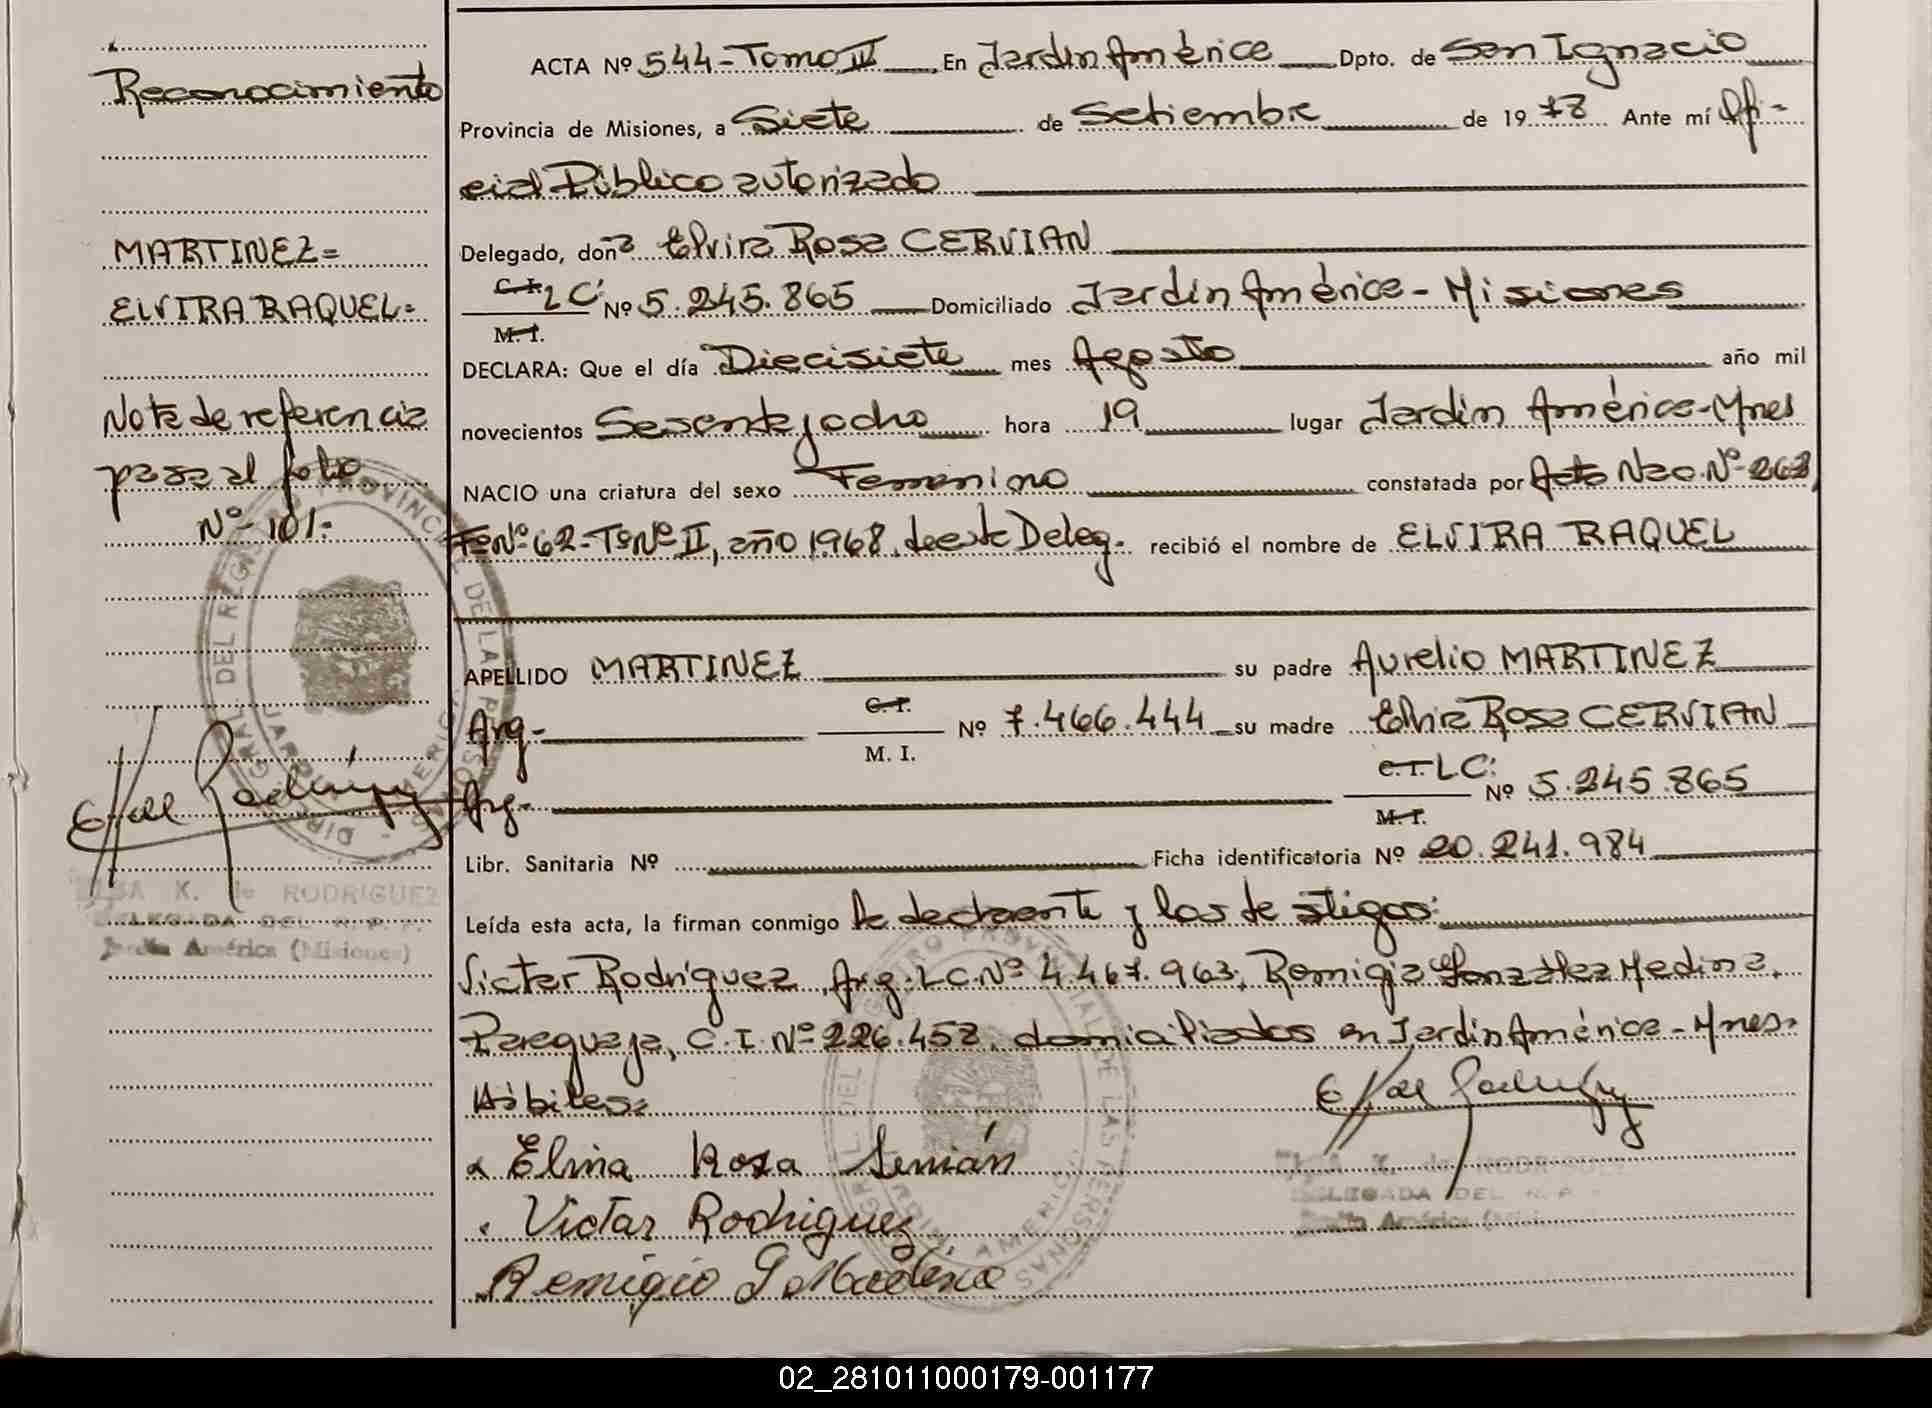 Reconocimiento
MARTINEZ=
ELVIRA RAQUEL=
Nota de referencia
pasa al folio
Nº 101.-
ACTA Nº 544-Tomo IV En Jardín América Dpto. de San Ignacio
Provincia de Misiones, a Siete de Setiembre de 1978 Ante mí Ofi-
cial Público autorizado
Delegado, donª Elvira Rosa CERVIAN
C.I. LC. Nº 5.245.865 Domiciliado Jardín América - Misiones
M.I.
DECLARA: Que el día Diecisiete mes Agosto año mil
novecientos Sesenta y ocho hora 19 lugar Jardín América-Mnes
NACIO una criatura del sexo Femenino constatada por Acta Nac. Nº 262
Fº Nº 62-Tº Nº II, año 1968, de esta Deleg. recibió el nombre de ELVIRA RAQUEL
APELLIDO MARTINEZ su padre Aurelio MARTINEZ
Arg.- C.I. M. I. Nº 7.466.444 su madre Elvira Rosa CERVIAN
Arg.- C.I. LC. M.I. Nº 5.245.865
Libr. Sanitaria Nº Ficha identificatoria Nº 20.241.984
Leída esta acta, la firman conmigo la declarante y los testigos:
Victor Rodríguez, Arg. LC. Nº 4.467.963, Remigia González Medina,
Paraguaya, C.I. Nº 226.458, domiciliados en Jardín América - Mnes.
Hábiles.
Elvira Rosa Servián
Victar Rodriguez
Remigio G Madina
K. de RODRIGUEZ
DELEGADA DEL R. P. P.
Jardín América (Misiones)
DIRECCION GRAL DEL REGISTRO PROVINCIAL DE LAS PERSONAS
JARDIN AMERICA
K. de RODRIGUEZ
DELEGADA DEL R. P.
Jardín América (Misi
02_281011000179-001177